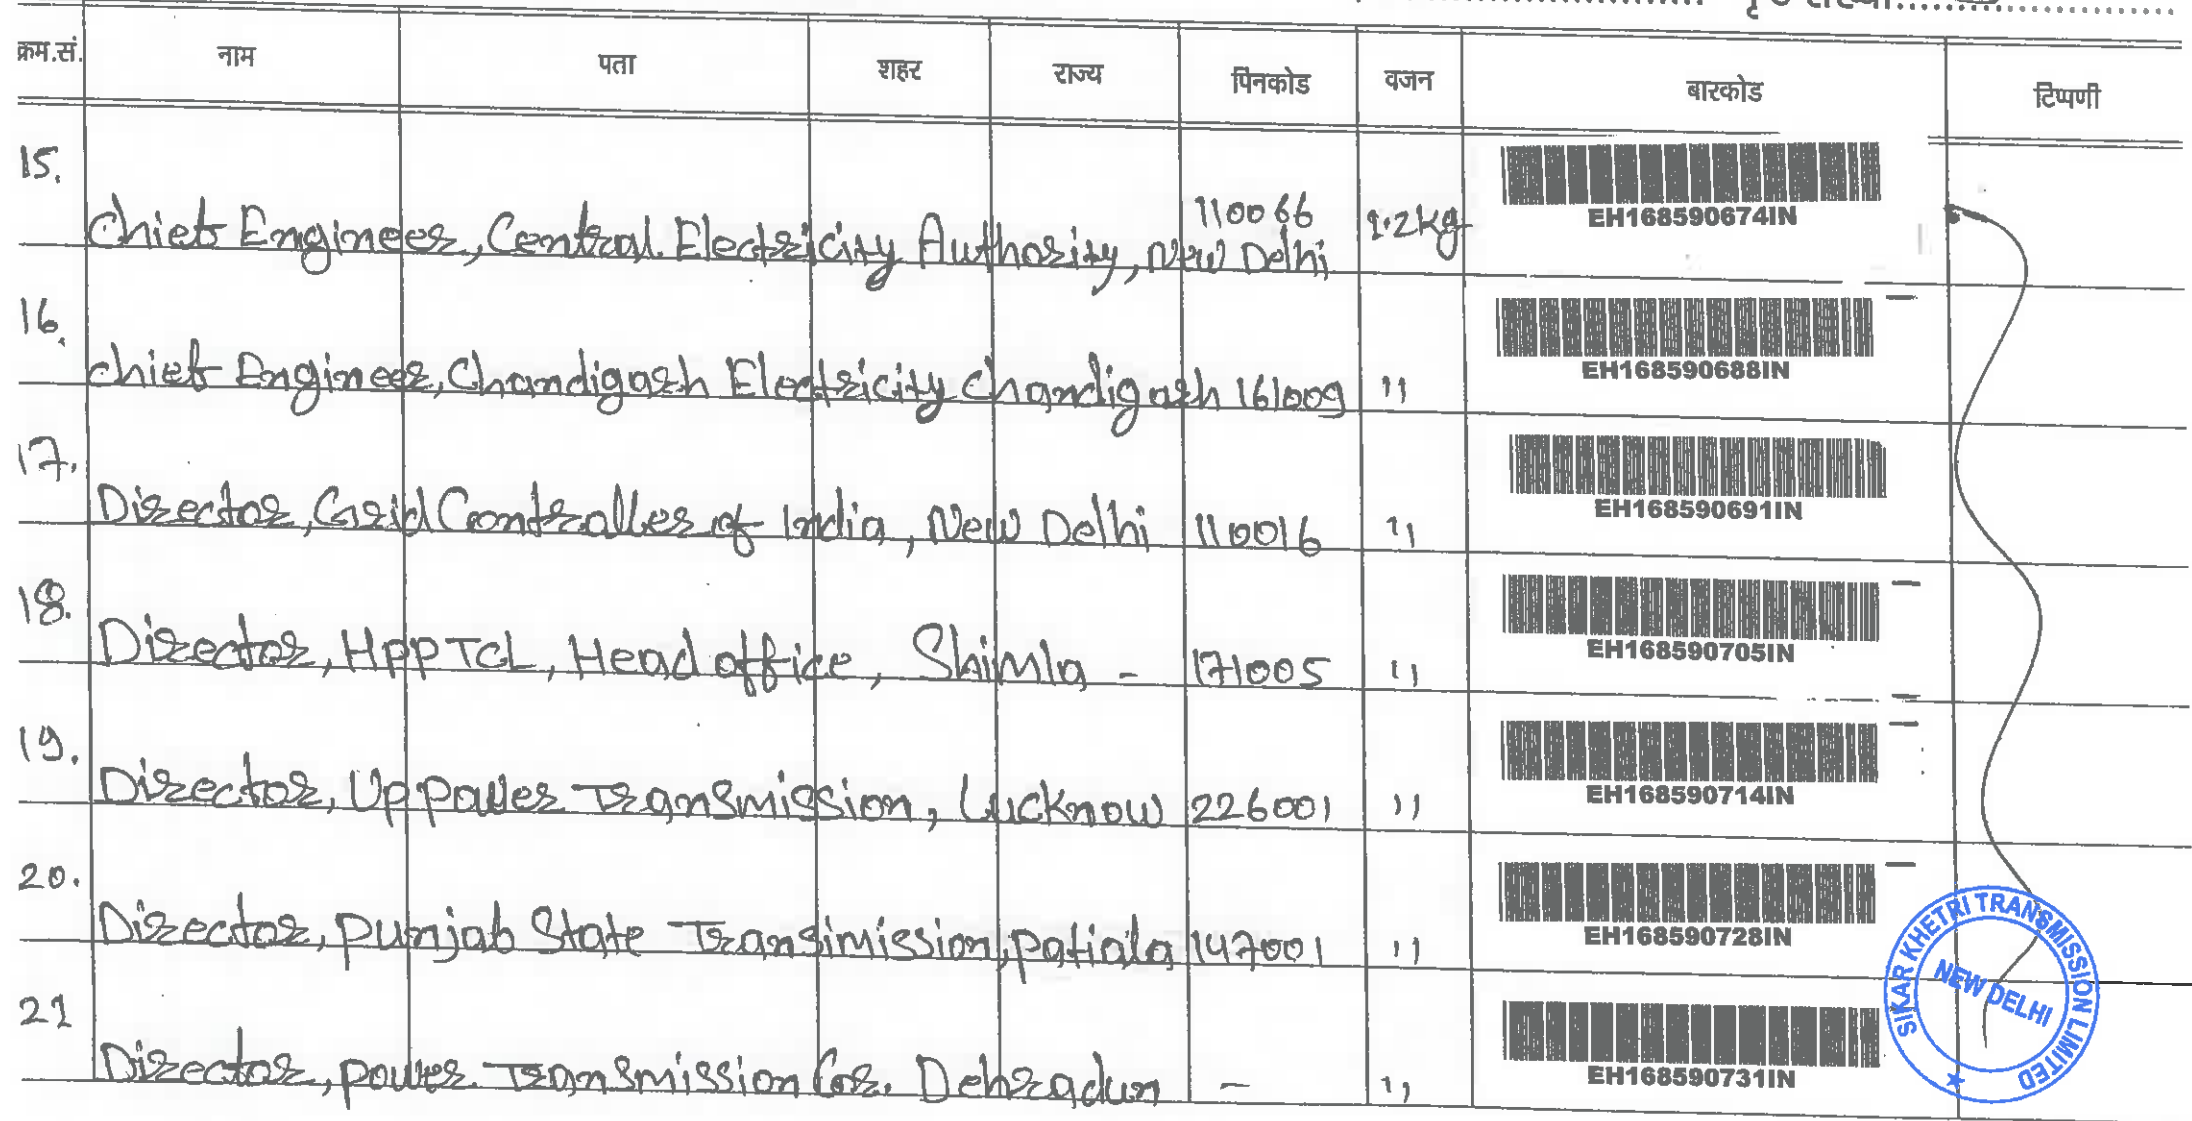 क्रम.सं. नाम पता शहर राज्य पिनकोड वजन बारकोड टिप्पणी
15. Chief Engineer, Central Electricity Authority, New Delhi 110066 1.2kg EH168590674IN
16. Chief Engineer, Chandigarh Electricity Chandigarh 161009 '' EH168590688IN
17. Director, Grid Controller of India, New Delhi 110016 '' EH168590691IN
18. Director, HPPTCL, Head office, Shimla - 171005 '' EH168590705IN
19. Director, Up Power Transmission, Lucknow 226001 '' EH168590714IN
20. Director, Punjab State Transimission, Patiala 147001 '' EH168590728IN
21 Director, Power Transmission Cor. Dehradun - '' EH168590731IN
SIKAR KHETRI TRANSMISSION LIMITED
NEW DELHI